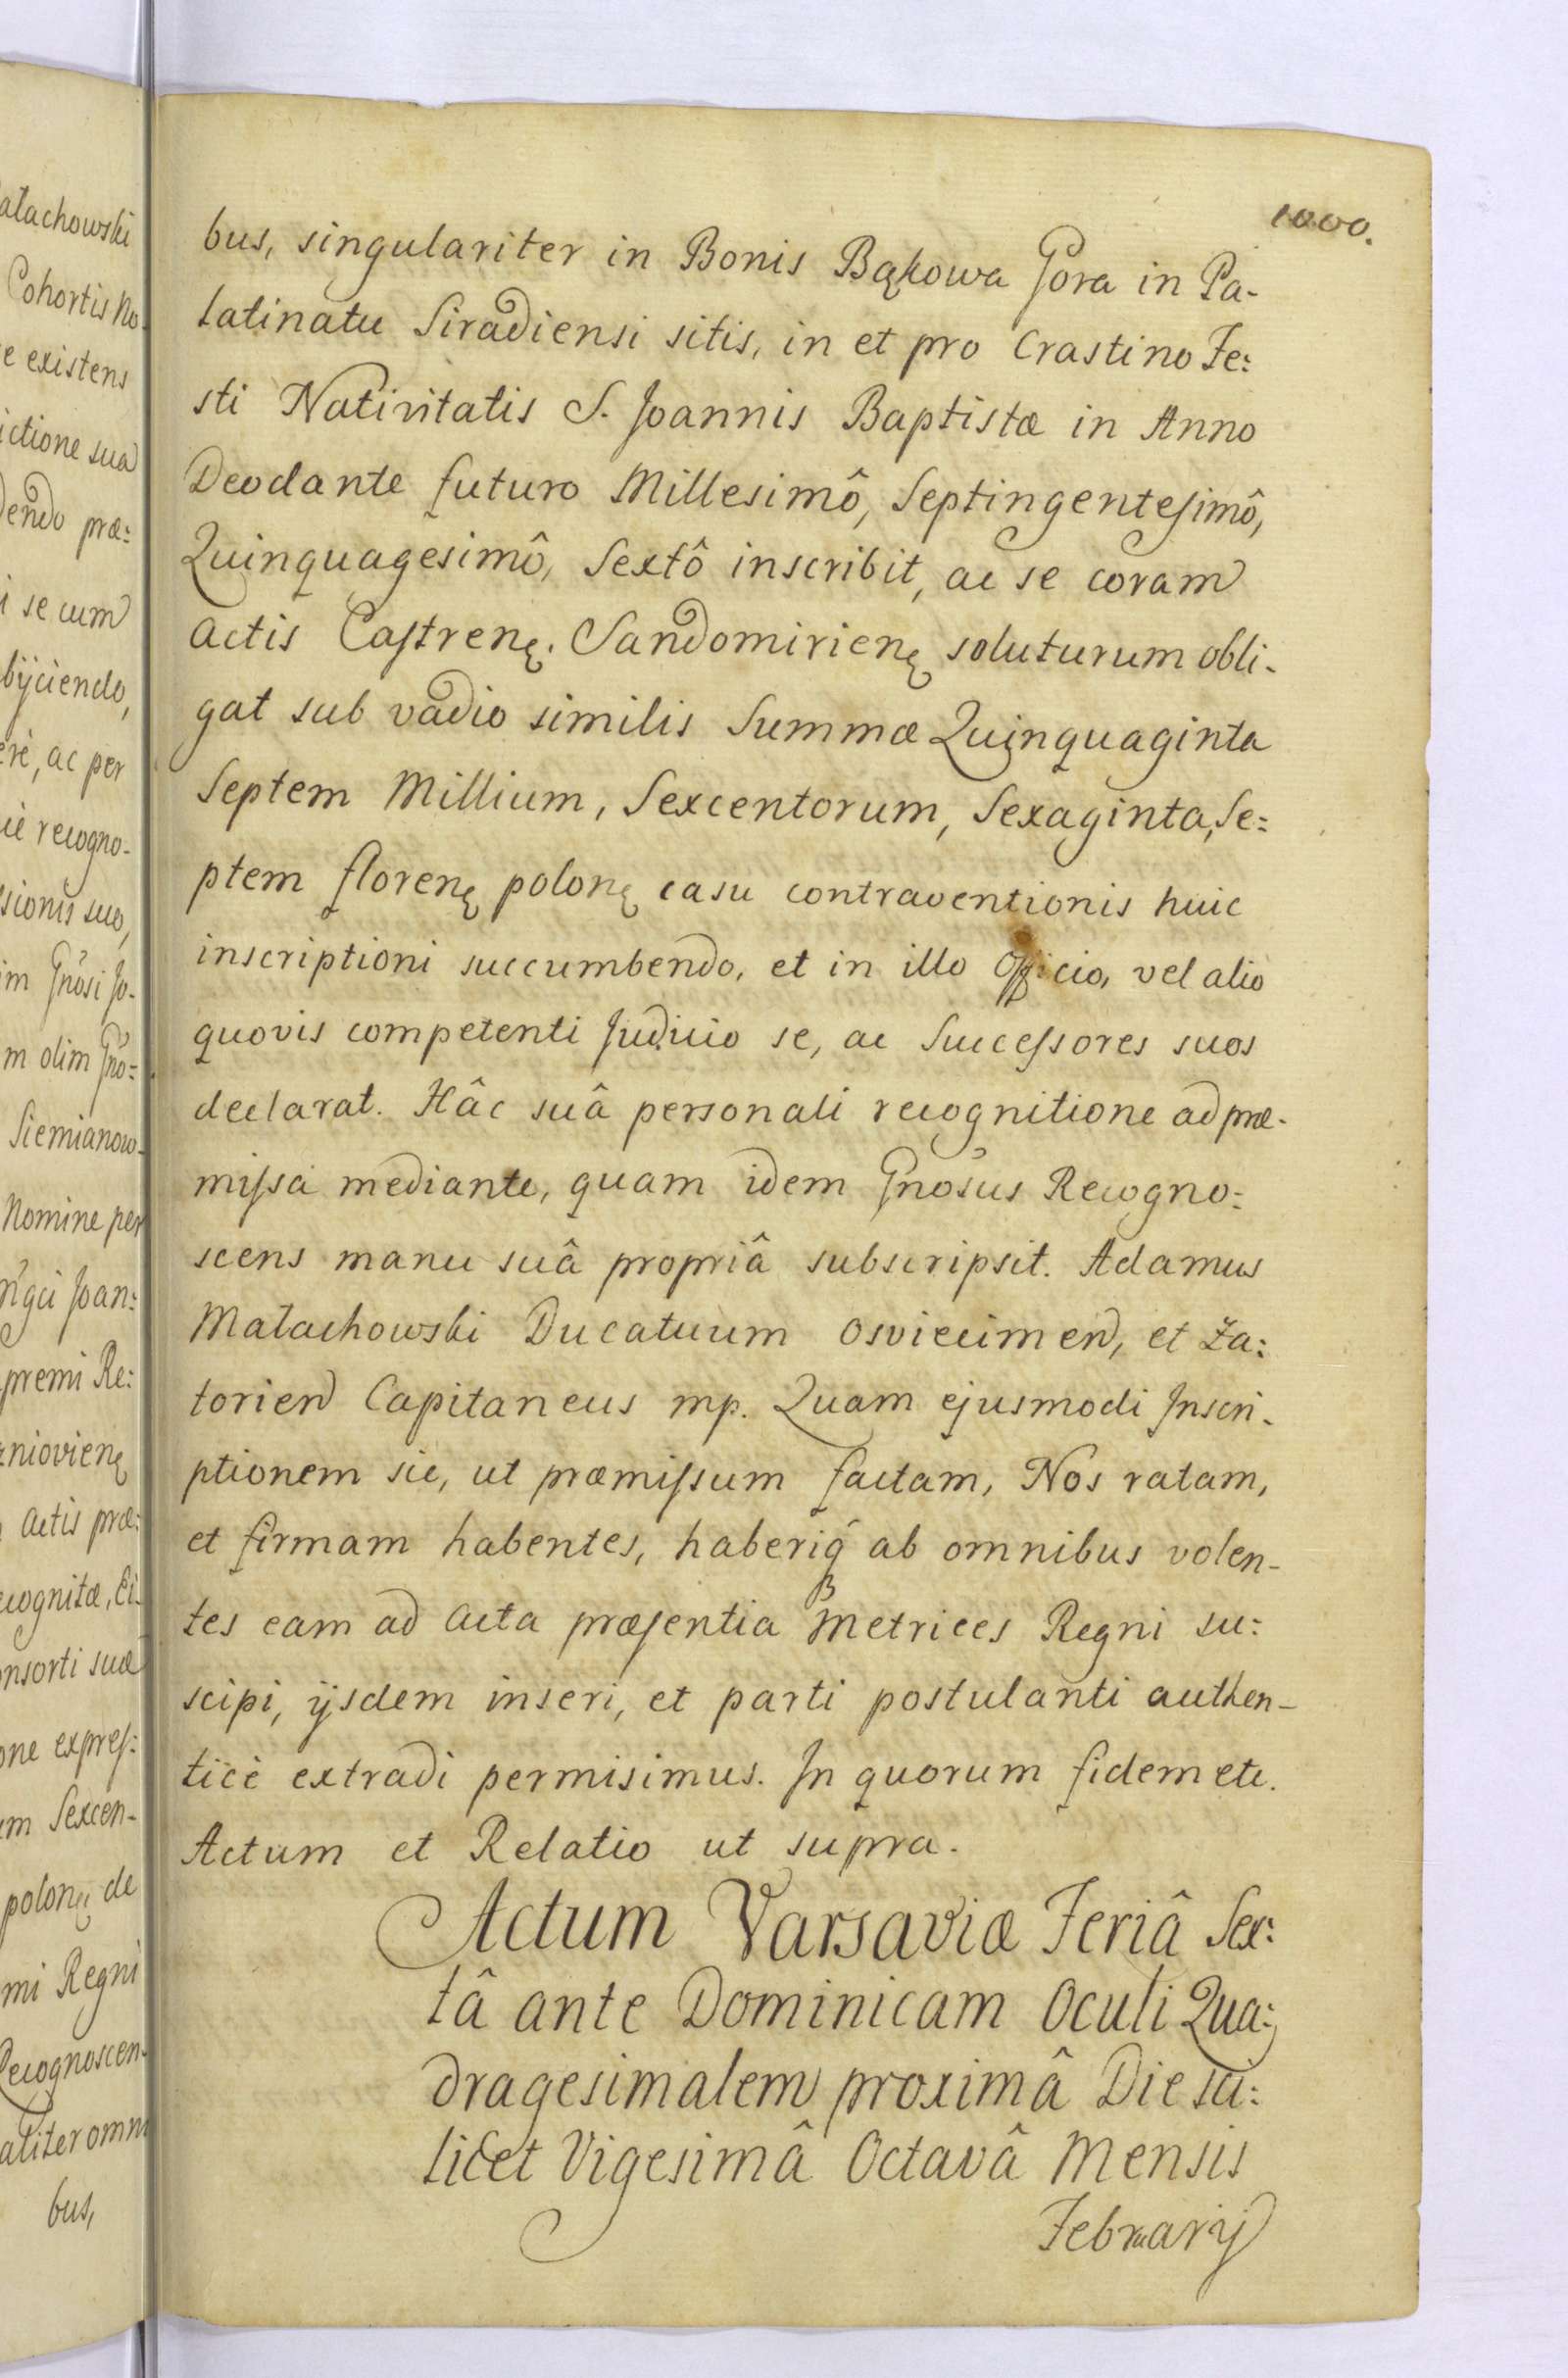 1000.
bus, singulariter in Bonis Bąkowa Gora in Pa-
latinatu Siradiensi sitis, in et pro Crastino Fe:
sti Nativitatis S. Joannis Baptistæ in Anno
Deodante futuro Millesimô, Septingentesimô,
Quinquagesimô, Sextô inscribit, ac se coram
actis Castrenę. Sandomirienę soluturum obli-
gat sub vadio similis Summæ Quinquaginta
Septem Millium, Sexcentorum, Sexaginta, Se:
ptem florenę polonę casu contraventionis huic
inscriptioni succumbendo, et in illo Officio, vel alio
quovis competenti Judicio se, ac Successores suos
declarat. Hâc suâ personali recognitione ad præ-
missa mediante, quam idem Gnosus Recogno:
scens manu suâ propriâ subscripsit. Adamus
Małachowski Ducatuum Osviecimen, et Za:
torien Capitaneus mp. Quam ejusmodi Inscri-
ptionem sic, ut præmissum factam, Nos ratam,
et firmam habentes, haberiq́ ab omnibus volen-
tes eam ad acta præsentia Metrices Regni su:
scipi, ijsdem inseri, et parti postulanti authen-
ticè extradi permisimus. In quorum fidem etc.
Actum et Relatio ut supra.
Actum Varsaviæ Feriâ Sex:
tâ ante Dominicam Oculi Qua:
dragesimalem proximâ Die sci:
licet Vigesimâ Octavâ Mensis
Februarij
atachowski
Cohortis No-
e existens
ictione sua
dendo præ:
i se cum
bijciendo,
erè, ac per
iè recogno-
sionis suo,
im Gnosi Jo-
m olim Gno:
Siemianow-
Nomine per
ngci Joan:
premi Re:
niovienę
actis præ:
ecognitæ, Ei-
onsorti suæ
one expres:
um Sexcen-
polonę de
mi Regni
Recognoscen-
aliter omni
bus,